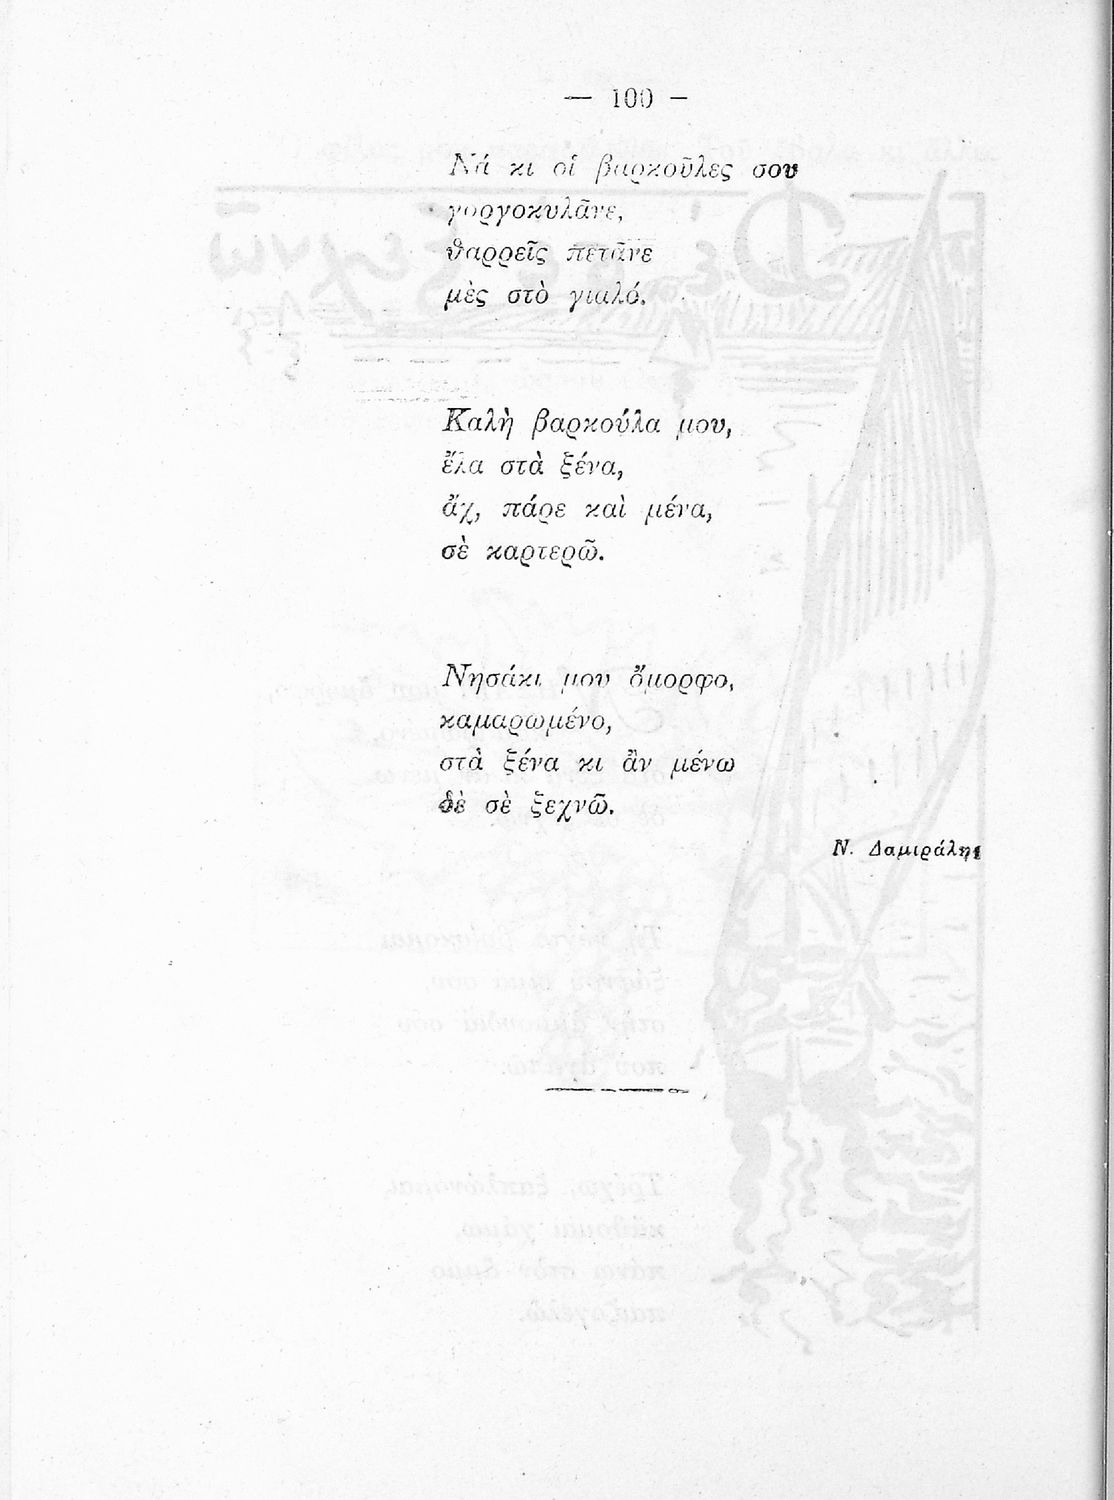 — 100 —
Νά κι οἱ βαρκοῦλες σου
γοργοκυλᾶνε,
θαρρεῖς πετᾶνε
μὲς στὸ γιαλό.
Καλὴ βαρκούλα μου,
ἔλα στὰ ξένα,
ἄχ, πάρε καὶ μένα,
σὲ καρτερῶ.
Νησάκι μου ὄμορφο,
καμαρωμένο,
στὰ ξένα κι ἂν μένω
δὲ σὲ ξεχνῶ.
Ν. Δαμιράλης